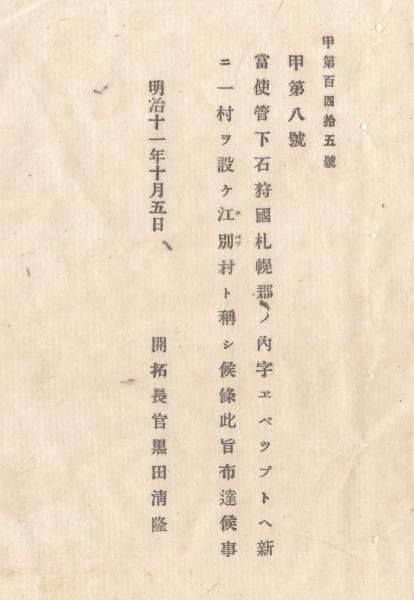 甲第百四拾五號
甲第八號
當使管下石狩國札幌郡ノ內字ヱベツブトヘ新
ニ一村ヲ設ケ江別村ト稱シ候條此旨布達候事
エベツ
明治十一年十月五日
開拓長官黒田清隆